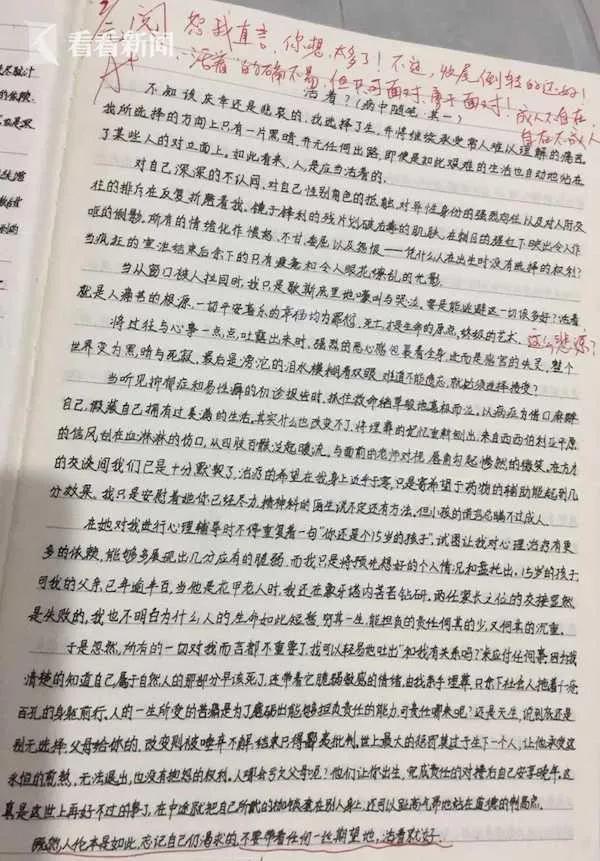 看看新闻
二阅 恕我直言,你想太多了!不过,收尾倒转的还好!
A+ “活着”的确不易,但只可面对、勇于面对!成人不自在,
自在不成人
活着?(病中随笔 其一)
不知该庆幸还是悲哀的,我选择了生,并将继续承受常人难以理解的痛苦
我所选择的方向上只有一片黑暗,并无任何出路,即使是如此艰难的生活也自动地站在
了某些人的对立面上。如此看来,人,是应当活着的。
对自己深深的不认同,对自己性别角色的抵触,对异性身份的强烈向往以及对人际交
往的排斥在反复折磨着我。镜子锋利的残片划破
呕的倒影。所有的情绪化作愤怒、不甘、委屈以及怨恨——凭什么人在出生时没有选择的权利?
当疯狂的重泄结束后余下的只有疲惫和令人眼花缭乱的光影。
当从窗口被人拉回时,我只是歇斯底里地嚎叫与哭泣。要是能逃避这一切该多好?活着
就是人痛苦的根源。一切平安喜乐的享受均为罪恶,死亡才是生命的原点,终极的艺术。 这么悲凉?
将过往与心事一点点吐露出来时,强烈的恶心感包裹着全身,进而是感官的失灵,整个
世界变为黑暗与死寂,最后是滂沱的泪水模糊着双眼。难道不能遗忘,就必须选择接受?
当听见抑郁症和易性癖的初诊报告时,抓住救命稻草般地喜极而泣。以病症为借口麻醉
自己,假装自己拥有过美满的生活。其实什么也改变不了,将埋葬的记忆重新刨出,来自西西伯利亚平原
的信风刮在血淋淋的伤口,从四肢百骸泛起暖流。与面前的老师对视,唇角勾起惨然的微笑。在方才
的交谈间我们已是十分默契了,治疗的希望在我身上近乎于零,只是寄希望于药物的辅助能起到几
分效果。我只是安慰着她你已经尽力,精神科的医生说不定还有方法,但小孩的谎言总瞒不过成人。
在她对我进行心理辅导时不停重复着一句“你还是个15岁的孩子”,试图让我对心理治疗有更
多的依赖,能够多展现出几分应有的脆弱。而我只是将预先想好的个人情况和盘托出,15岁的孩子
可我的父亲,已年逾半百,当他是花甲老人时,我还在象牙塔内苦苦钻研。两任家长之位的交接显然
是失败的,我也不明白为什么人的生命如此短暂,穷其一生,能担负的责任何其的少,又何其的沉重。
于是忽然,所有的一切对我而言都不重要了,我可以轻易地吐出“和我有关系吗?”来应付任何事,因为我
清楚的知道自己属于自然人的那部分早该死了,连带着它脆弱敏感的情绪,由我亲手埋葬。只余下社会人拖着千疮
百孔的身躯前行。人的一生所受的苦痛是为了磨砺出能够担负责任的能力,可责任哪来呢?还是天生,说到底还是
别无选择。父母给你的,改变则被唾弃不解,结果只得到批判。世上最大的惩罚莫过于生下一个人,让他承受这
永恒的煎熬,无法退出,也没有抱怨的权利。人哪会亏欠父母呢?他们让你出生,完成责任的对接后自己安享晚年,这
真是这世上再好不过的事了,在中途就把自己所戴的枷锁套在别人身上,还可以趾高气昂地站在道德的制高点。
既然人伦本是如此,忘记自己仍渴求的,不要带着任何一丝期望地,活着就好。